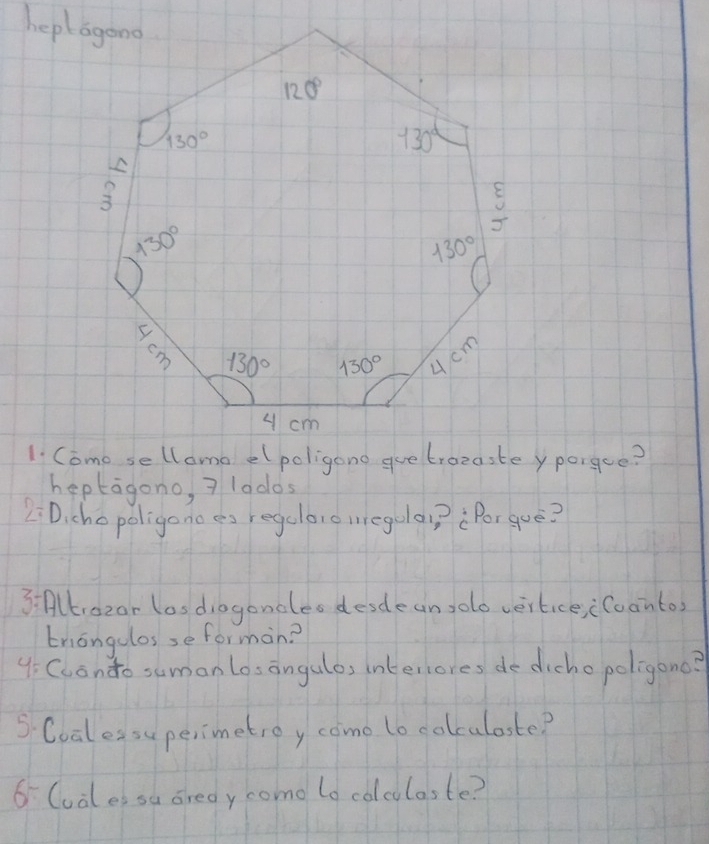 heptágono
120°
130°
130°
4 cm
4 cm
130°
130°
4 cm
130°
130°
4 cm
4 cm
1. Cómo se llama el poligono que trazaste y porque?
heptágono, 7 lados
2- Dicho poligono es regular o irregular? ¿Por qué?
3- Al trazar las diagonales desde un solo vértice, ¿Cuántos
triángulos se forman?
4- Cuánto suman los ángulos interiores de dicho poligono?
5. Cuál es su perimetro y cómo lo calculaste?
6- Cuál es su área y como lo calculaste?